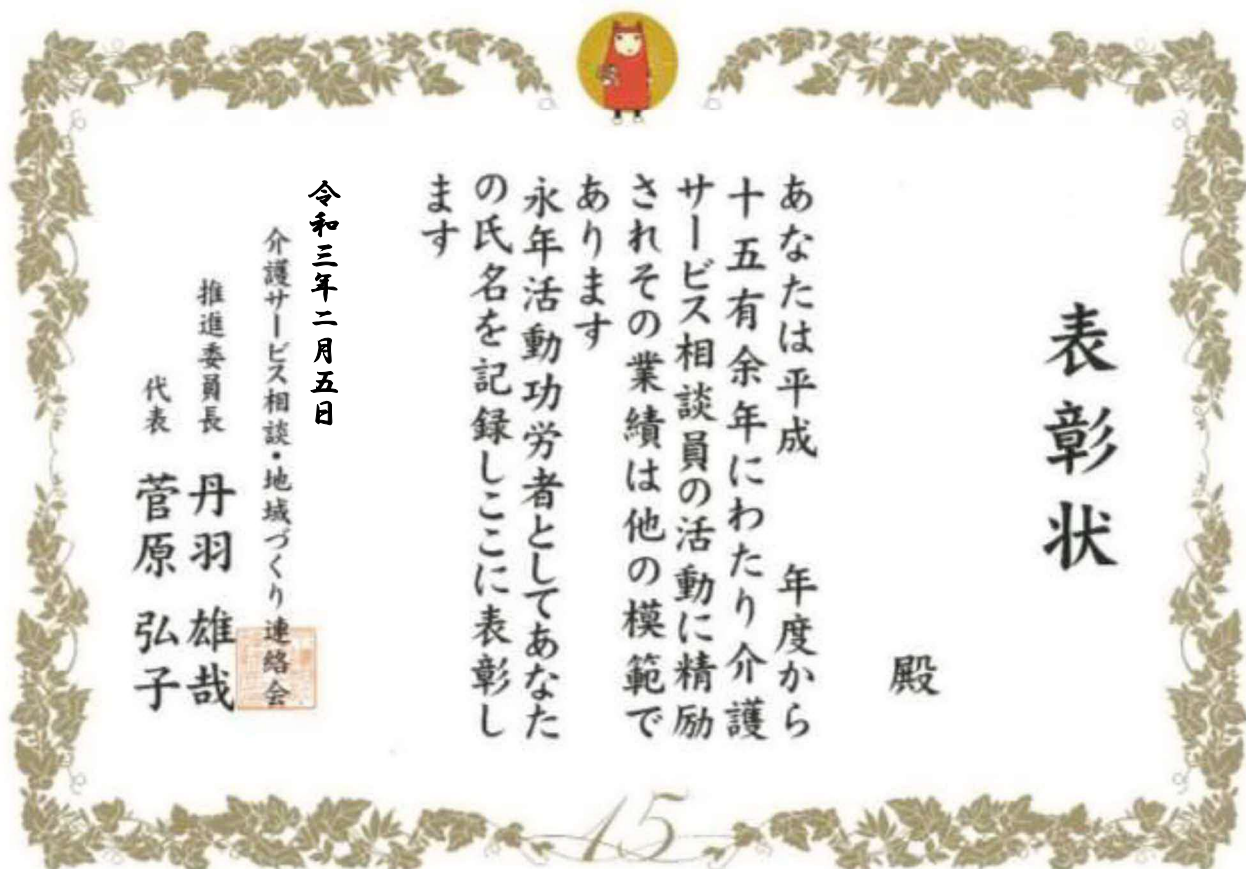 表彰状
殿
あなたは平成　　年度から
十五有余年にわたり介護
サービス相談員の活動に精励
されその業績は他の模範で
あります
永年活動功労者としてあなた
の氏名を記録しここに表彰し
ます
令和三年二月五日
介護サービス相談・地域づくり連絡会
推進委員長　丹羽　雄哉
代表　菅原　弘子
15